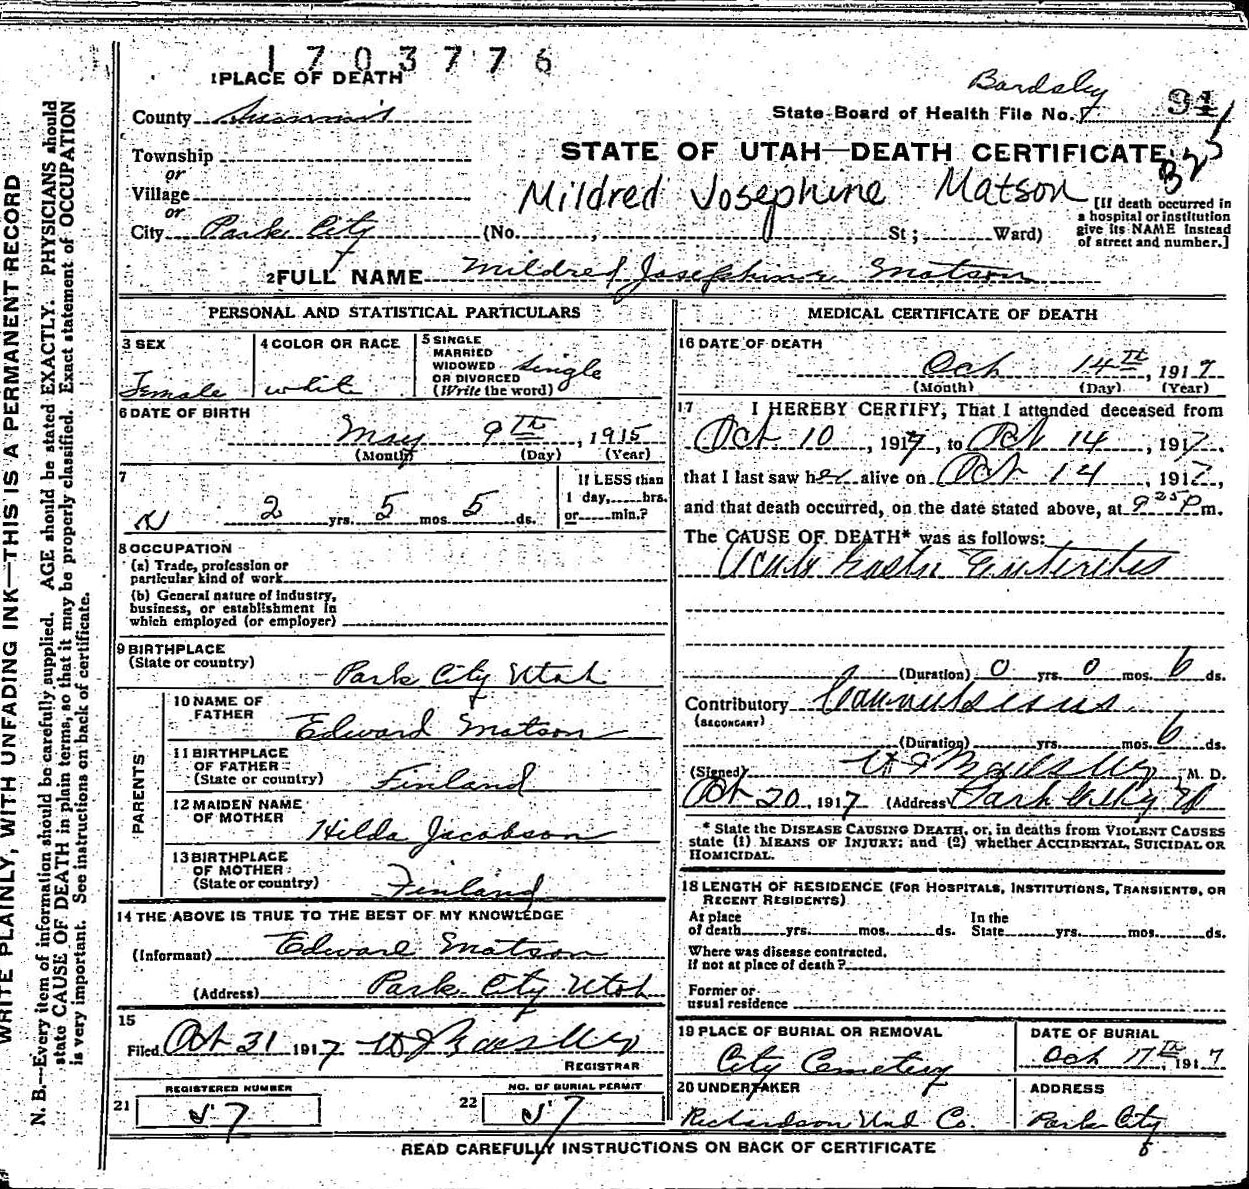 1703776
1 PLACE OF DEATH
Bardsley
County Summit
State Board of Health File No. 91
325
Township
or
STATE OF UTAH—DEATH CERTIFICATE
Village
or
Mildred Josephine Matson
[If death occurred in a hospital or institution give its NAME instead of street and number.]
City Park City (No. , St; Ward)
2 FULL NAME Mildred Josephine Matson
PERSONAL AND STATISTICAL PARTICULARS
3 SEX Female
4 COLOR OR RACE white
5 SINGLE MARRIED WIDOWED OR DIVORCED (Write the word) single
6 DATE OF BIRTH
May 9TH, 1915
(Month) (Day) (Year)
7
2 yrs. 5 mos 5 ds.
If LESS than
1 day, hrs.
or min.?
8 OCCUPATION
(a) Trade, profession or
particular kind of work
(b) General nature of industry,
business, or establishment in
which employed (or employer)
9 BIRTHPLACE
(State or country)
Park City Utah
PARENTS
10 NAME OF
FATHER
Edward Matson
11 BIRTHPLACE
OF FATHER
(State or country) Finland
12 MAIDEN NAME
OF MOTHER
Hilda Jacobson
13 BIRTHPLACE
OF MOTHER
(State or country) Finland
14 THE ABOVE IS TRUE TO THE BEST OF MY KNOWLEDGE
(Informant) Edward Matson
(Address) Park City Utah
15
Filed Oct 31 1917
REGISTRAR
REGISTERED NUMBER
21 57
NO. OF BURIAL PERMIT
22 57
MEDICAL CERTIFICATE OF DEATH
16 DATE OF DEATH
Oct 14TH, 1917
(Month) (Day) (Year)
17 I HEREBY CERTIFY, That I attended deceased from
Oct 10, 1917, to Oct 14, 1917.
that I last saw her alive on Oct 14, 1917,
and that death occurred, on the date stated above, at 9 25 P m.
The CAUSE OF DEATH* was as follows:
Acute Gastro Enteritis
(Duration) 0 yrs 0 mos 6 ds.
Contributory
(SECONDARY)
(Duration) yrs. mos 6 ds.
(Signed) M. D.
Oct 20, 1917 (Address) Park City U
* State the DISEASE CAUSING DEATH, or, in deaths from VIOLENT CAUSES
state (1) MEANS OF INJURY; and (2) whether ACCIDENTAL, SUICIDAL OR
HOMICIDAL.
18 LENGTH OF RESIDENCE (FOR HOSPITALS, INSTITUTIONS, TRANSIENTS, OR
RECENT RESIDENTS)
At place
of death yrs. mos. ds.
In the
State yrs. mos. ds.
Where was disease contracted,
if not at place of death?
Former or
usual residence
19 PLACE OF BURIAL OR REMOVAL
City Cemetery
DATE OF BURIAL
Oct 17TH, 1917
20 UNDERTAKER
Richardson Und Co.
ADDRESS
Park City
READ CAREFULLY INSTRUCTIONS ON BACK OF CERTIFICATE
WRITE PLAINLY, WITH UNFADING INK—THIS IS A PERMANENT RECORD
N. B.—Every item of information should be carefully supplied. AGE should be stated EXACTLY. PHYSICIANS should
state CAUSE OF DEATH in plain terms, so that it may be properly classified. Exact statement of OCCUPATION
is very important. See instructions on back of certificate.